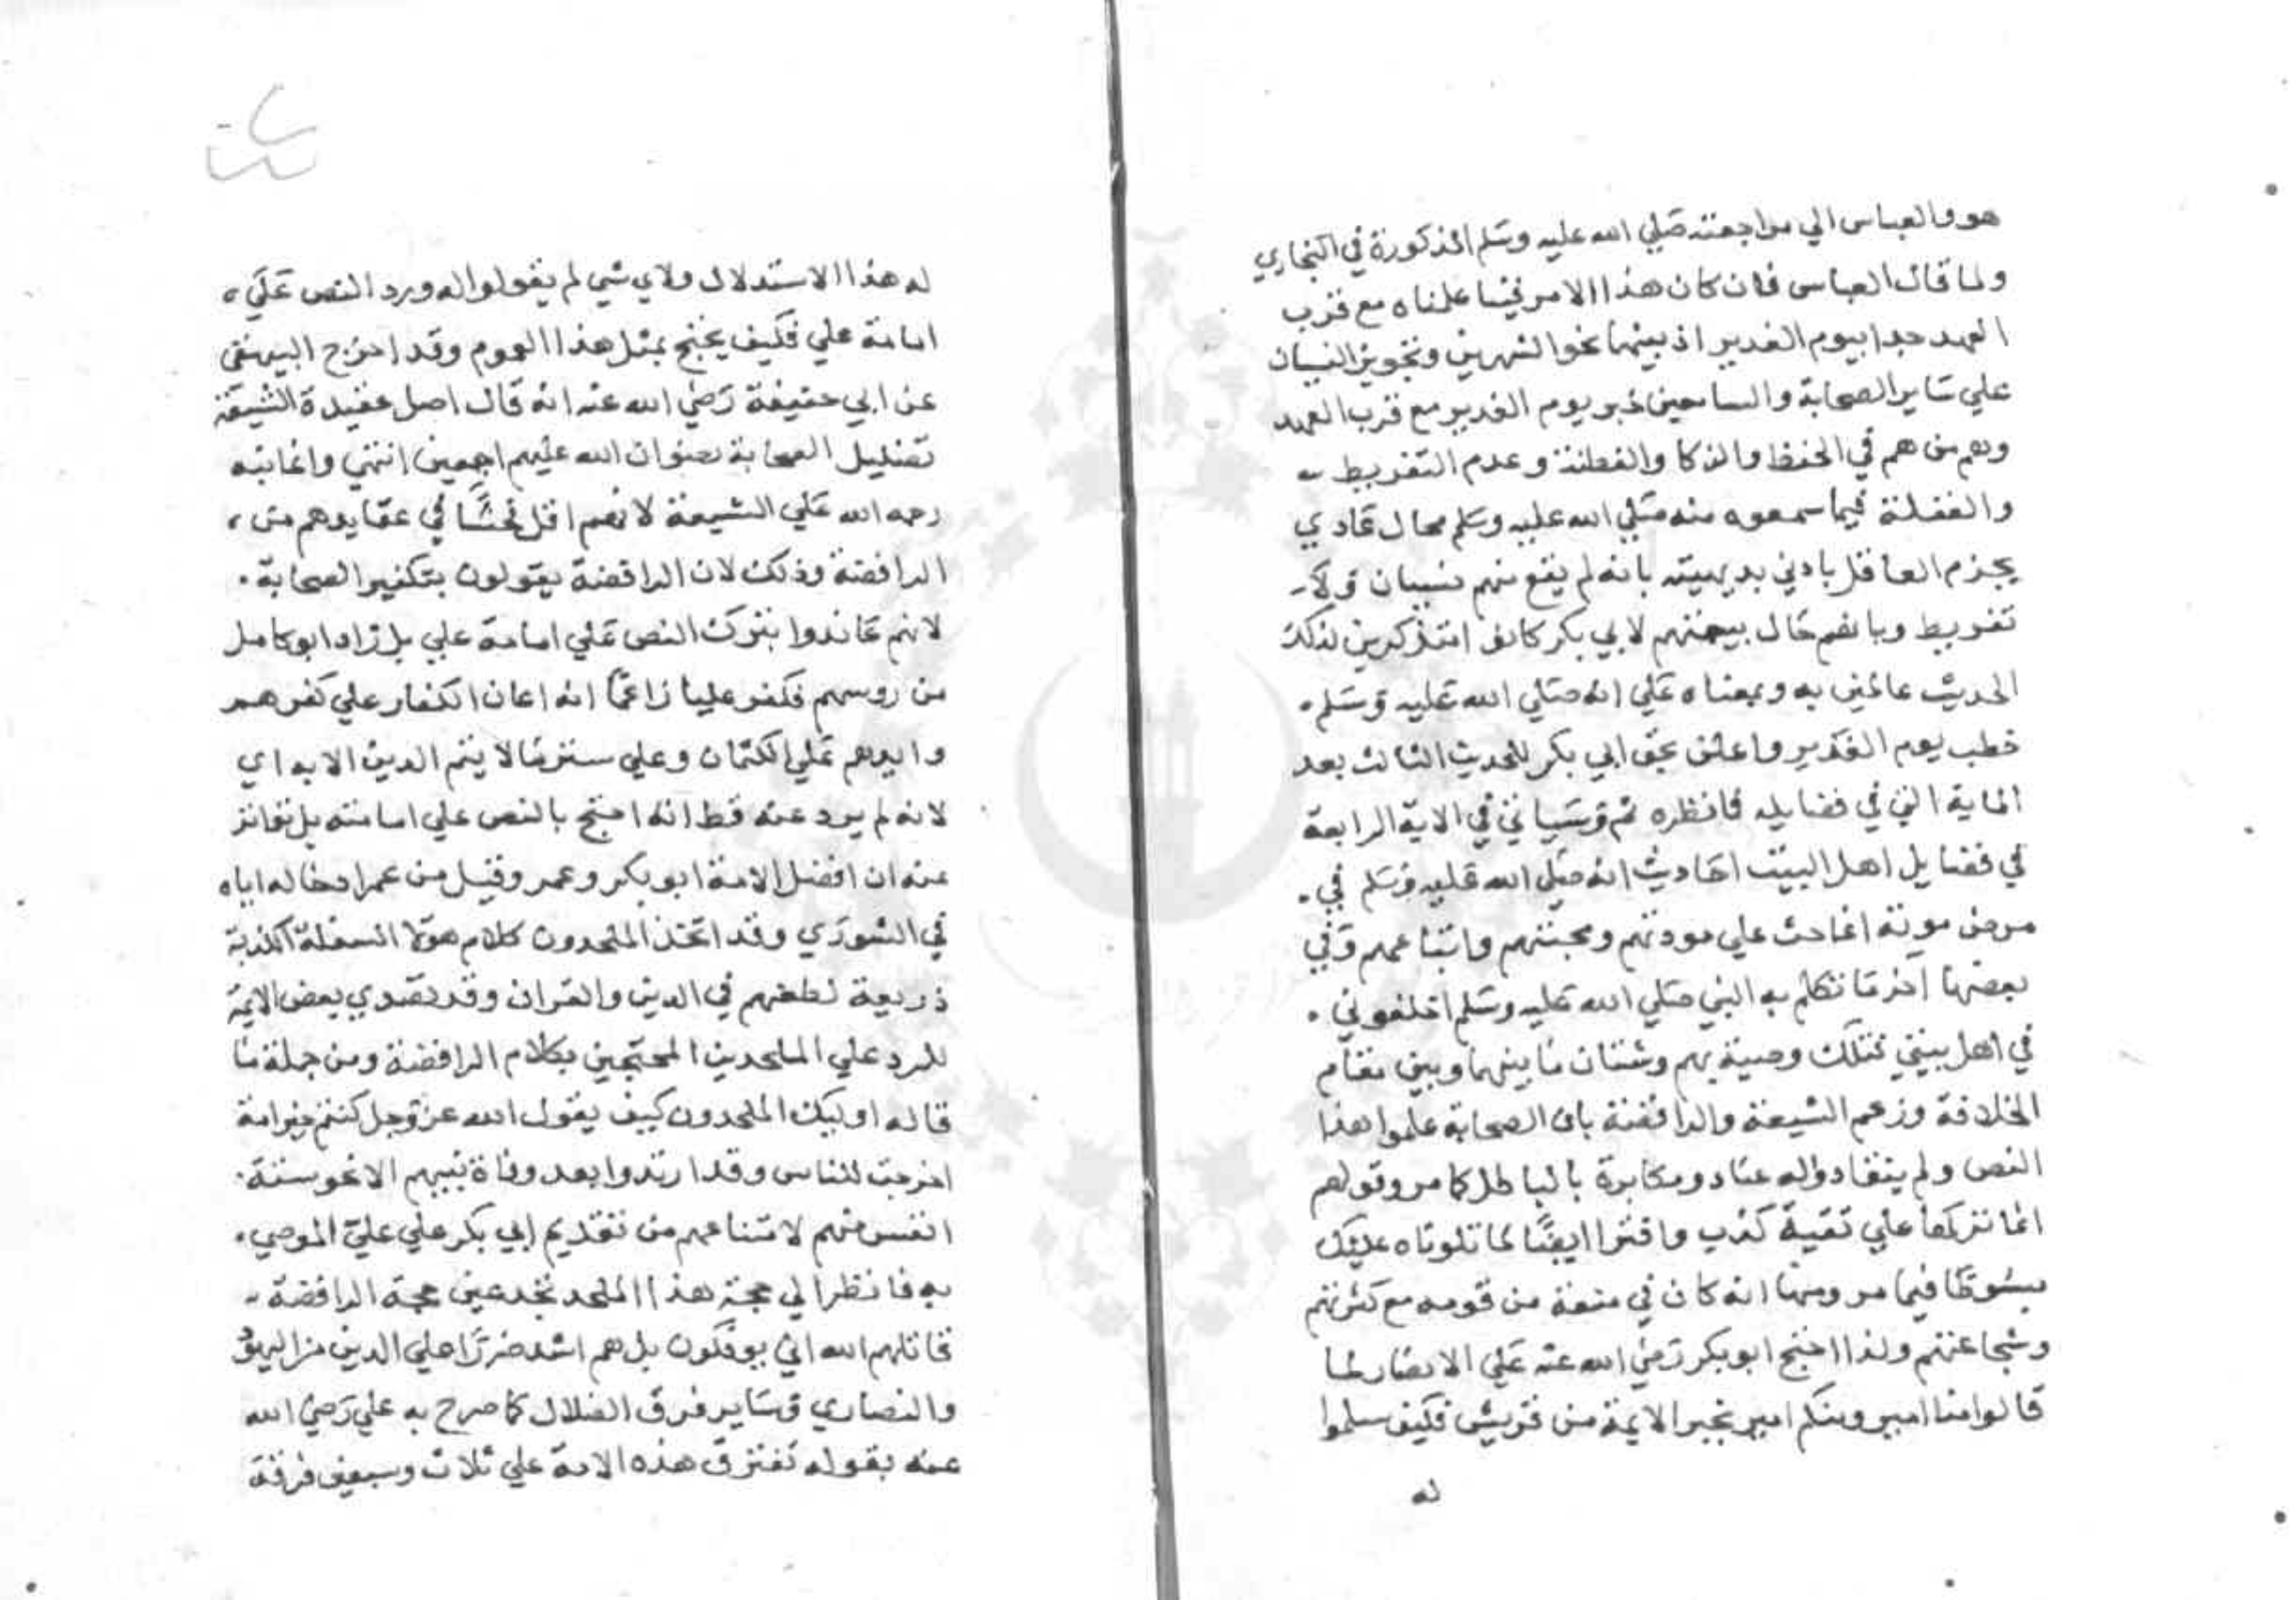 هو والعباس الي مراجعته صَلي الله عليه وسَلم المذكورة في البخاري
ولما قال العباس فان كان هذا الامر فينا علمناه مع قرب
العهد جدا بيوم الغدير اذ بينهما نحو الشهرين وتجويز النسيان
علي سَاير الصحابة والسامعين لخبر يوم الغدير مع قرب العهد
وهم من هم في الحفظ والذكا والفطنة وعدم التفريط
والغفلة فيما سمعوه منه صَلي الله عليه وسَلم محال عَادي
يجزم العاقل بادني بديهيته بانه لم يقع منهم نسيان وَلا
تفريط وبانهم حَال بيعتهم لابي بكر كانوا متذكرين لذلك
الحديث عالمين به وبمعناه عَلي انه صَلي الله عَليه وَسَلم
خطب يوم الغدير واعلن بحق ابي بكر للحديث الثالث بعد
الماية التي في فضايله فانظره ثم وَسَياتي في الاية الرابعة
في فضايل اهل البيت احَاديث انه صَلي الله عَليه وَسَلم في
مرض موته انما حث علي مودتهم ومحبتهم واتباعهم وَفي
بعضها آخر مَا تكلم به النبي صَلي الله عَليه وسَلم اخلفوني
في اهل بيتي فتلك وصية بهم وشتان مَا بينهما وبين مقام
الخلافة وزعم الشيعة والرافضة بان الصحابة علموا هذا
النص ولم ينقادوا له عناد ومكابرة بالباطل كما مر وقولهم
انما تركها علي تقية كذب وافترا ايضًا لما تلوناه عليك
مبسُوطَا فيما مر ومنها انه كان في منعة من قومه مع كثرتهم
وشجاعتهم ولذا احتج ابو بكر رَضي الله عنه عَلي الانصَار لما
قالوا منا امير ومنكم امير بخبر الايمة من قريش فكيف سلموا
له
له هذا الاستدلال ولاي شي لم يقولوا له ورد النص عَلَي
امامة علي فكيف يحتج بمثل هذا العموم وقد اخرج البيهقي
عن ابي حنيفة رَضي الله عنه انه قال اصل عقيدة الشيعة
تضليل الصحابة رضوان الله عليهم اجمعين انتهي وانما نبه
رحمه الله عَلي الشيعة لانهم اقل فحشًا في عقايدهم من
الرافضة وذلك لان الرافضة يقولون بتكفير الصحابة
لانهم عَاندوا بترك النص عَلي امامة علي بل زاد ابو كامل
من روسهم فكفر عليا زاعمًا انه اعان الكفار علي كفرهم
وايدهم عَلي الكتمان وعلي ستر مَا لا يتم الدين الا به اي
لانه لم يرد عنه قط انه احتج بالنص علي امامته بل تواتر
عنه ان افضل الامة ابو بكر وعمر وقبل من عمر ادخاله اياه
في الشورَي وقد اتخذ الملحدون كلام هولا السفلة الكذبة
ذريعة لطعنهم في الدين والقران وقد تصَدي بعض الايمة
للرد علي الملحدين المحتجين بكلام الرافضة ومن جملة مَا
قاله اوليك الملحدون كيف يقول الله عز وجل كنتم خير امة
اخرجت للناس وقد ارتدوا بعد وفاة نبيهم الا نحو ستة
انفس منهم لامتناعهم من تقديم ابي بكر علي عليّ الموصي
به فانظر الي حجة هذا الملحد تجدعين حجة الرافضة
قاتلهم الله اني يوفكون بل هم اشد ضررَا علي الدين من اليهود
والنصاري وَسَاير فرق الضلال كما صرح به علي رَضي الله
عنه بقوله تفترق هذه الامة علي ثلاث وسبعين فرقة